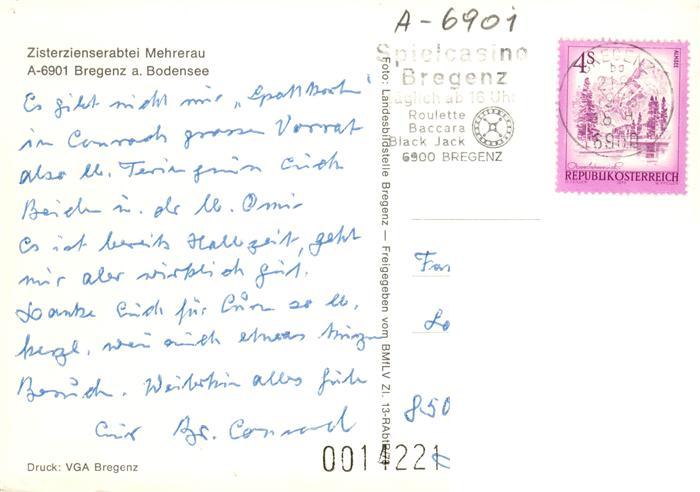 A-6901
Zisterzienserabtei Mehrerau
A-6901 Bregenz a. Bodensee
Es gibt nicht nur
in Conrads grossen Vorrat
also lb. Feriengrüsse Euch
Beiden u. der lb. Omi
Es ist bereits Halbzeit, geht
mir aber wirklich gut.
Danke Euch für Euren so lb.
herzl. wenn auch etwas kurzen
Besuch. Weiterhin alles Gute
Euer Br. Conrad
Druck: VGA Bregenz
Foto: Landesbildstelle Bregenz — Freigegeben vom BMfLV Zl. 13-RAbtB/78
Spielcasino
Bregenz
täglich ab 16 Uhr
Roulette
Baccara
Black Jack
6900 BREGENZ
4S
ALMSEE
REPUBLIK ÖSTERREICH
BREGENZ
6901
Fa
Lo
850
0014221